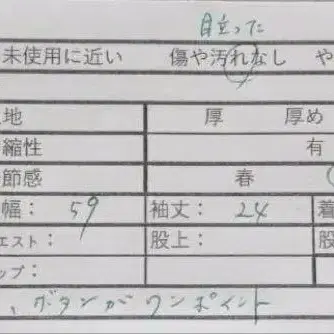 目立った
未使用に近い 傷や汚れなし や
地 厚 厚め
縮性 有
節感 春
幅： 59 袖丈： 24 着
エスト： 股上： 股
ップ：
、ボタンがワンポイント